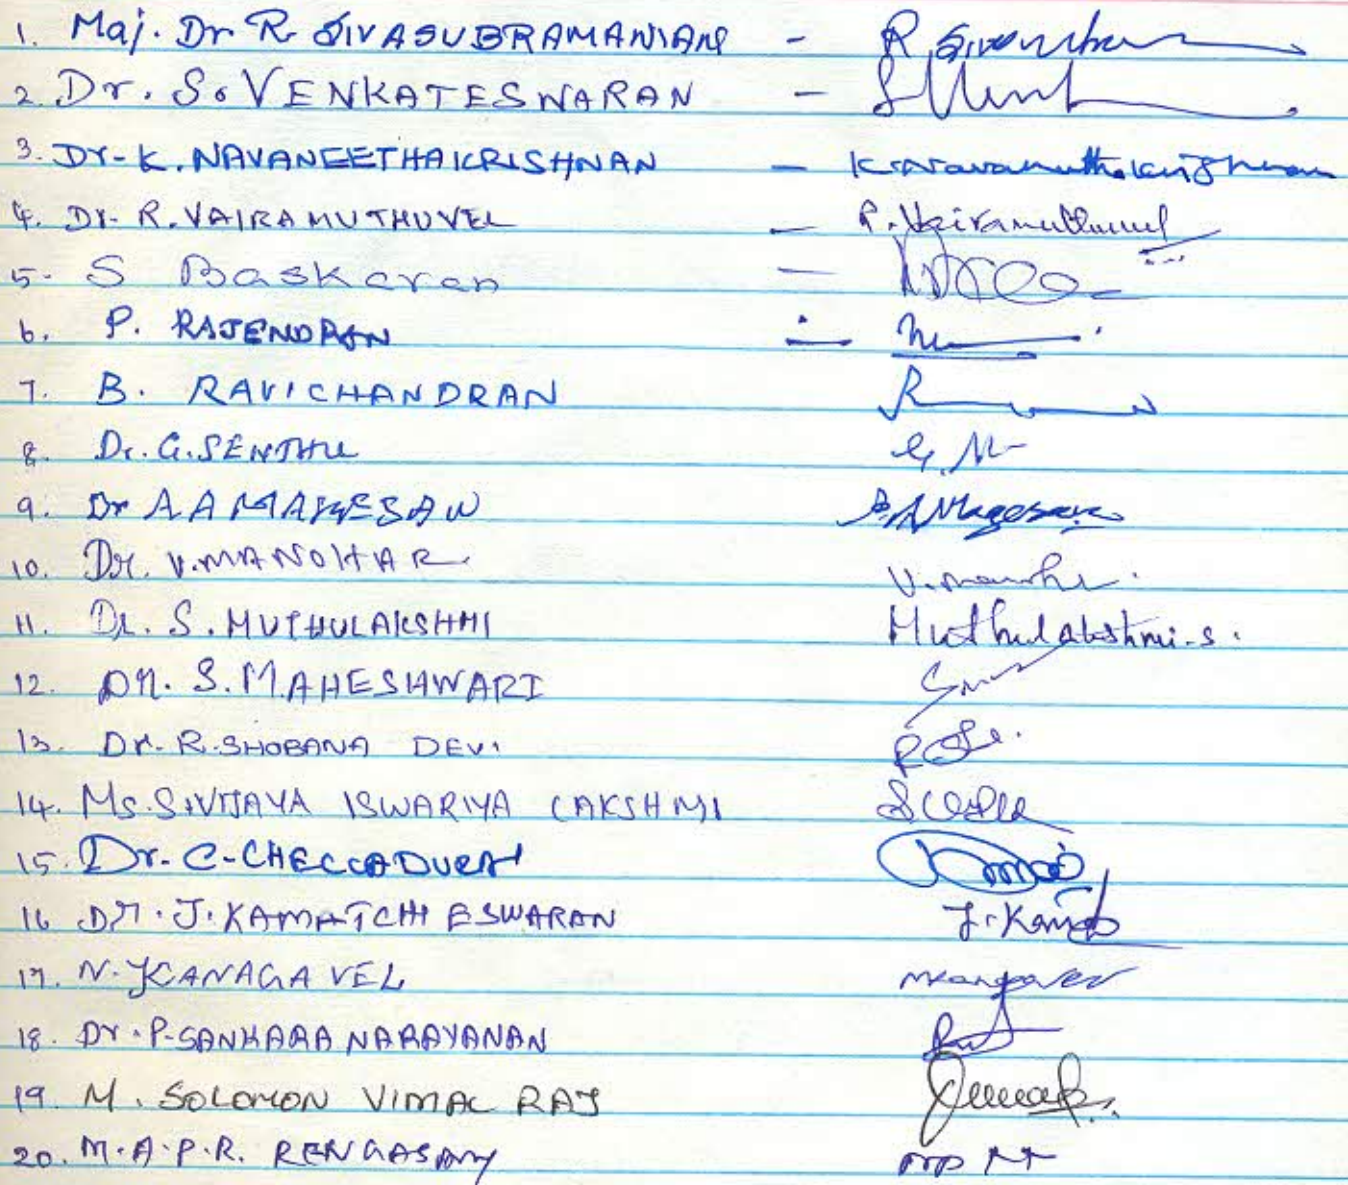 1. Maj. Dr. R. SIVASUBRAMANIAN - R. Siva
2. Dr. S. VENKATESWARAN -
3. Dr. K. NAVANEETHAKRISHNAN - K. Navaneethakrishnan
4. Dr. R. VAIRAMUTHUVEL - R. Vairamuthuvel
5. S Baskaran -
6. P. RAJENDRAN -
7. B. RAVICHANDRAN
8. Dr. G. SENTHIL
9. Dr A A MAGESAN A.A. Magesan
10. Dr. V. MANOHAR V. Manohar
11. Dr. S. MUTHULAKSHMI Muthulakshmi.S.
12. DR. S. MAHESHWARI
13. Dr. R. SHOBANA DEVI
14. Ms. S. VIJAYA ISWARIYA LAKSHMI
15. Dr. C. CHELLADURAI
16 Dr. J. KAMATCHI ESWARAN J. Kamat
17. N. KANAGAVEL N Kanagavel
18. Dr. P. SANKARA NARAYANAN
19. M. SOLOMON VIMAL RAJ
20. M.A.P.R. RENGASAMY